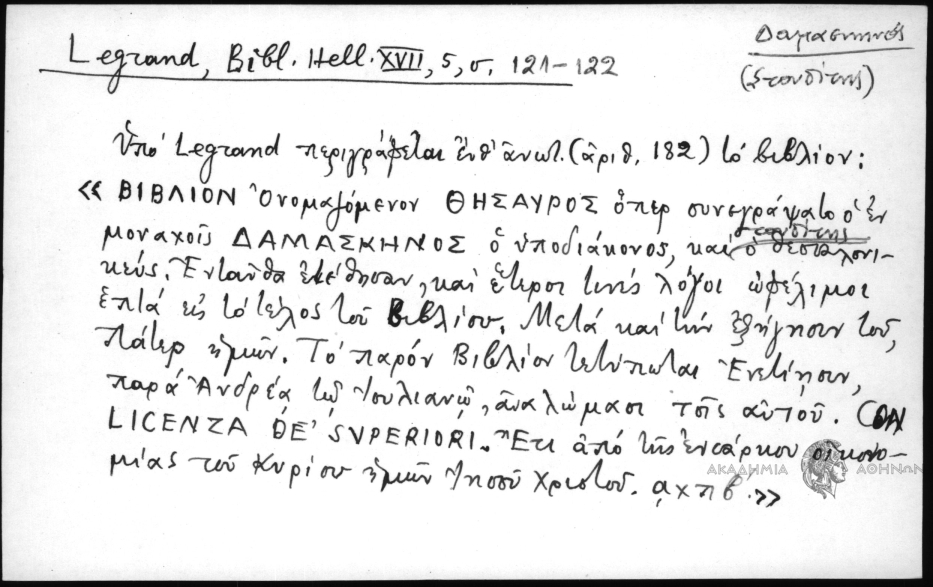 Legrand, Bibl. Hell. XVII, 5, σ. 121-122
Δαμασκηνός
(Στουδίτης)
Ὑπό Legrand περιγράφεται ἐνθ' ἀνωτ. (ἀριθ. 182) τό βιβλίον:
« ΒΙΒΛΙΟΝ Ὀνομαζόμενον ΘΗΣΑΥΡΟΣ ὅπερ συνεγράψατο ὁ ἐν
μοναχοῖς ΔΑΜΑΣΚΗΝΟΣ ὁ ὑποδιάκονος, καί Στουδίτης ὁ Θεσσαλονι-
κεύς. Ἐνταῦθα ἐτέθησαν, καί ἕτεροι τινές λόγοι ὠφέλιμοι
ἑπτά εἰς τό τέλος τοῦ Βιβλίου. Μετά καί τήν ἐξήγησιν τοῦ,
Πάτερ ἡμῶν. Τό παρόν Βιβλίον τετύπωται Ἐνετίησιν,
παρά Ἀνδρέα τῷ Ἰουλιανῷ, ἀναλώμασι τοῖς αὐτοῦ. CON
LICENZA DE' SVPERIORI. Ἔτι ἀπό τῆς ἐνσάρκου οἰκονο-
μίας τοῦ Κυρίου ἡμῶν Ἰησοῦ Χριστοῦ. ͵αχπβ΄. »
ΑΚΑΔΗΜΙΑ ΑΘΗΝΩΝ